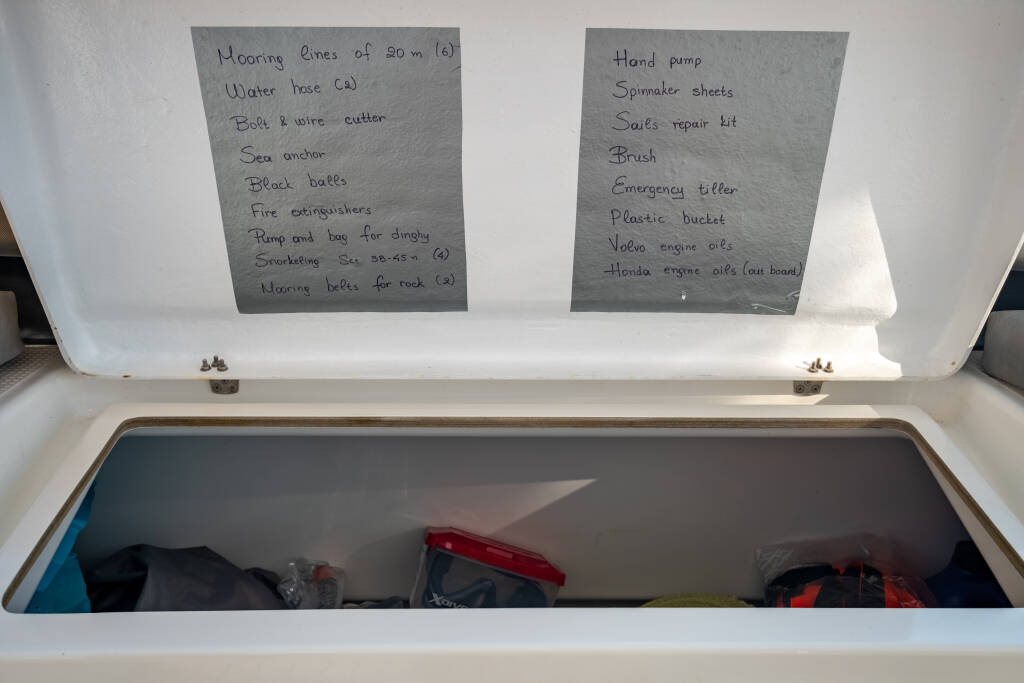 Mooring lines of 20 m (6)
Water hose (2)
Bolt & wire cutter
Sea anchor
Black balls
Fire extinguishers
Pump and bag for dinghy
Snorkeling Set 38-45 n (4)
Mooring belts for rock (2)
Hand pump
Spinnaker sheets
Sails repair kit
Brush
Emergency tiller
Plastic bucket
Volvo engine oils
Honda engine oils (out board)